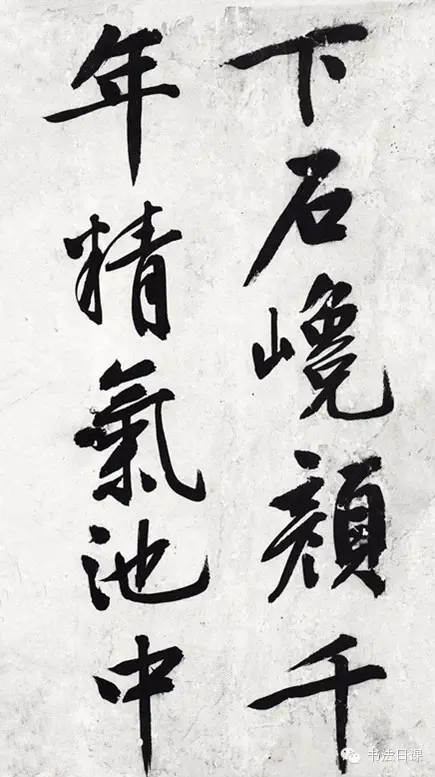 下石巉顏千
年精氣池中
书法日课